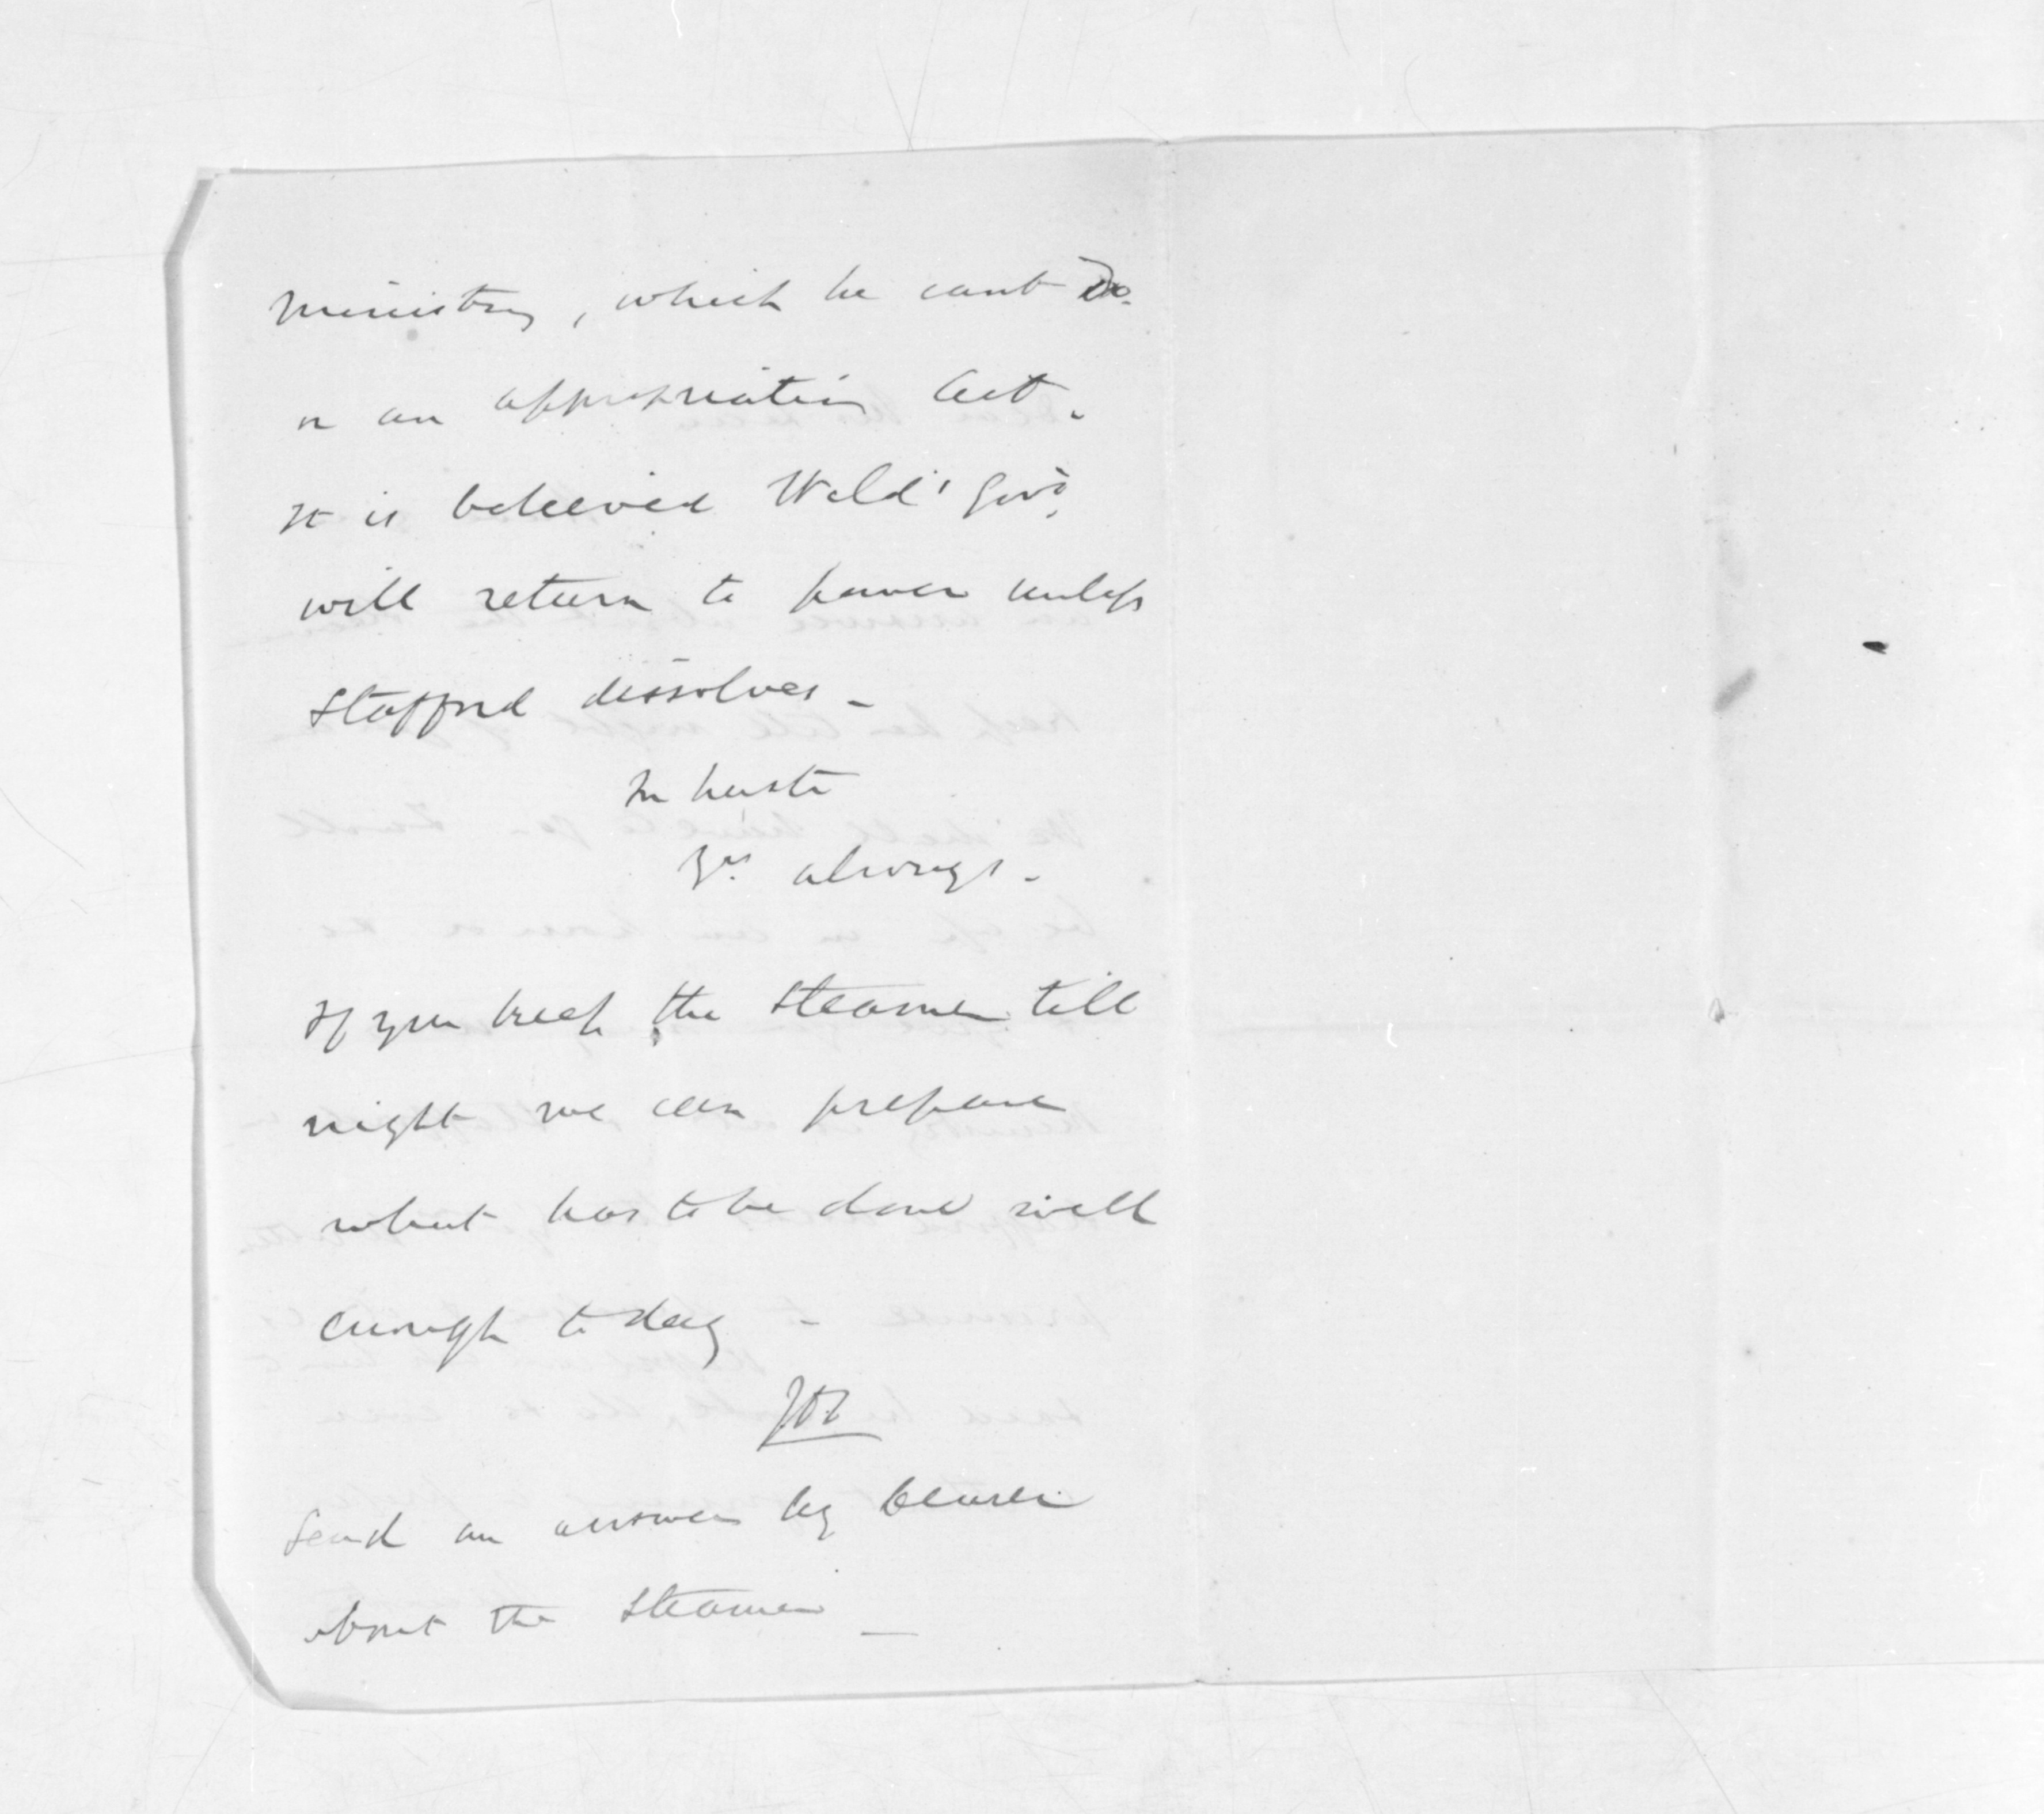 Ministry, which he cant do.
or an appropriation Act.
It is believed Weld's Govt.
will return to power unless
Stafford dissolves -
In haste
Yrs always.
If you keep the steamer till
night we can prepare
what has to be done well
enough to day
Send an answer by bearer
about the steamer _